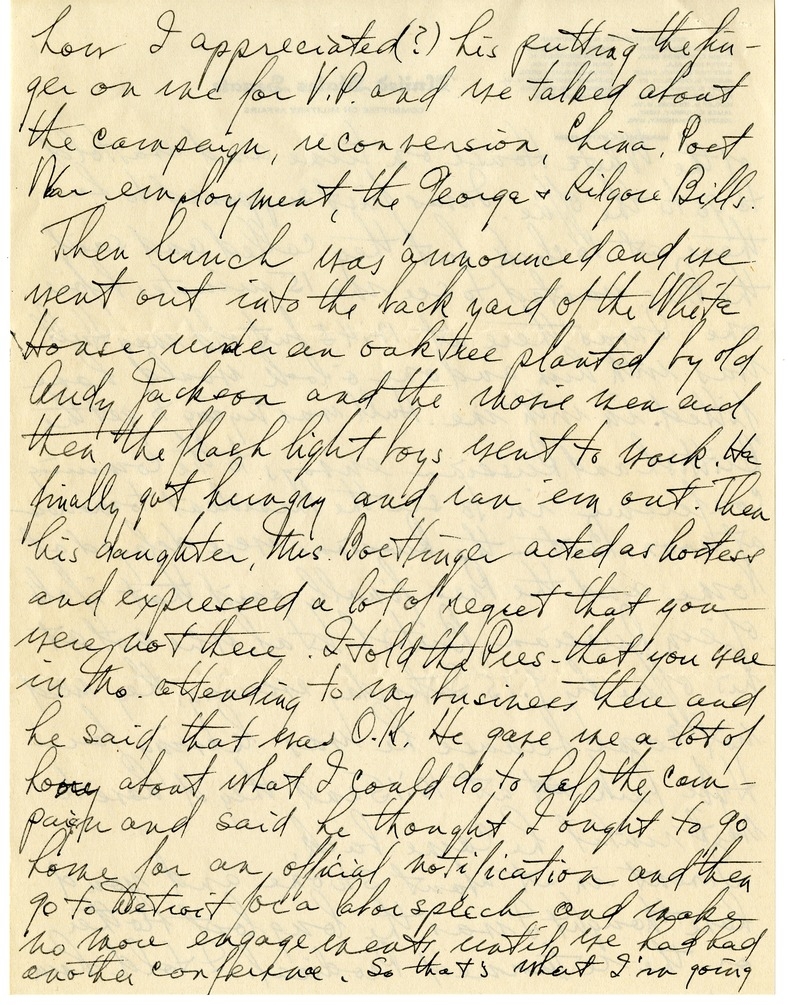 how I appreciated(?) his putting the fin-
ger on me for V.P. and we talked about
the campaign, reconversion, China, Post
War employment, the George & Kilgore Bills.
Then lunch was announced and we
went out into the back yard of the White
House under an oak tree planted by old
Andy Jackson and the movie men and
then the flash light boys went to work. He
finally got hungry and ran 'em out. Then
his daughter, Mrs. Boettinger acted as hostess
and expressed a lot of regret that you
were not there. I told the Pres. that you were
in Mo. attending to my business there and
he said that was O.K. He gave me a lot of
hooey about what I could do to help the cam-
paign and said he thought I ought to go
home for an official notification and then
go to Detroit for a labor speech and make
no more engagements until we had had
another conference. So that's what I'm going